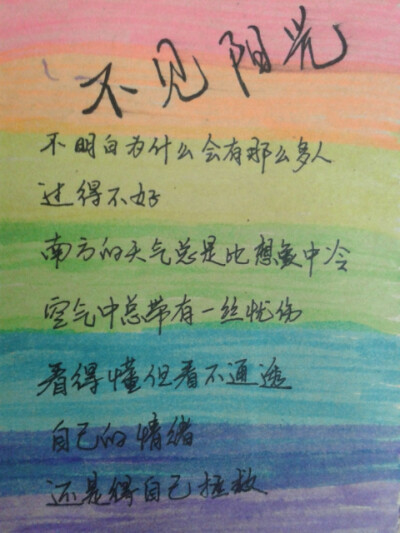 不见阳光
不明白为什么会有那么多人
过得不好
南方的天气总是比想象中冷
空气中总带有一丝忧伤
看得懂但看不通透
自己的情绪
还是得自己拯救